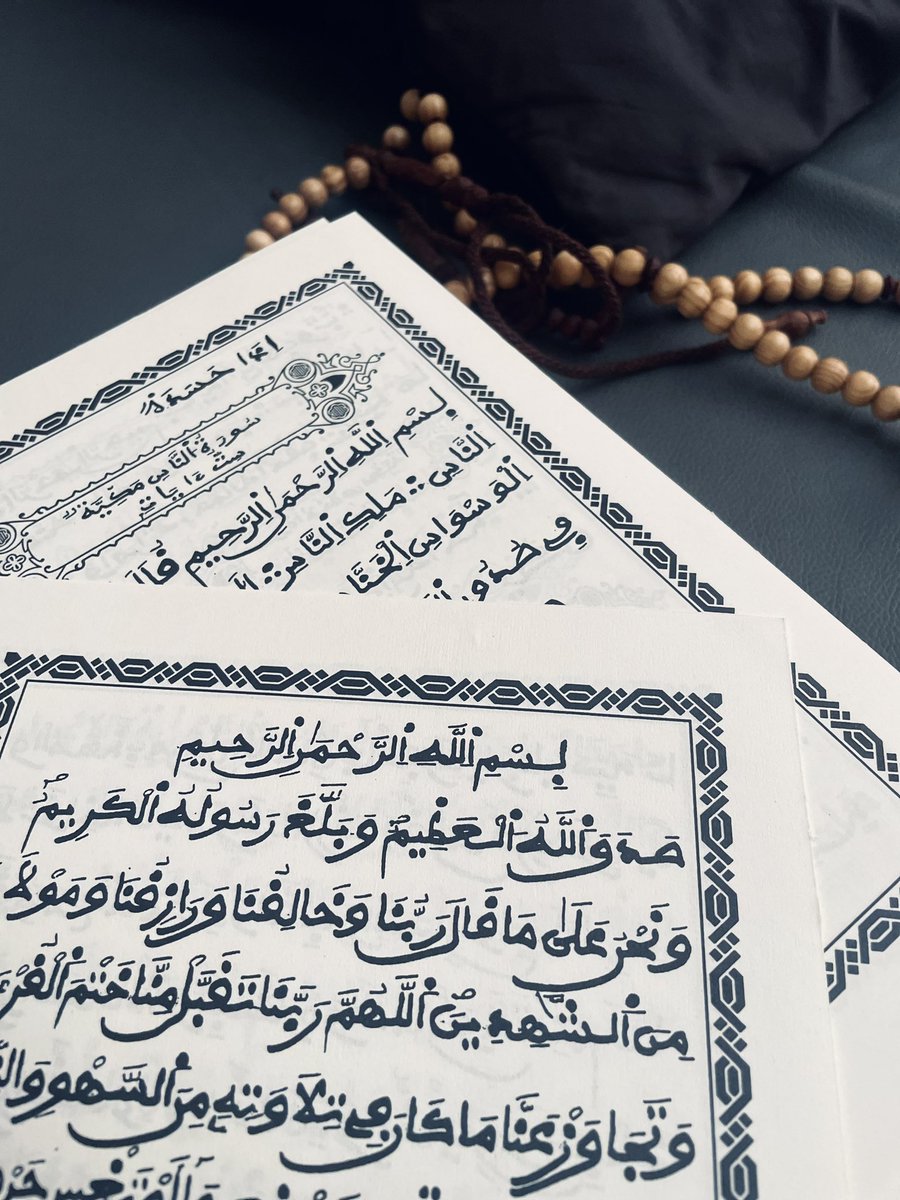 سُورَةُ النَّاسِ مَكِّيَّةٌ
سِتُّ ءَايَاتٍ
بِسْمِ اللَّهِ الرَّحْمَٰنِ الرَّحِيمِ
النَّاسِ مَلِكِ النَّاسِ
الْوَسْوَاسِ
فِي صُدُورِ
بِسْمِ اللَّهِ الرَّحْمَٰنِ الرَّحِيمِ
صَدَقَ اللَّهُ الْعَظِيمُ وَبَلَّغَ رَسُولُهُ الْكَرِيمُ
وَنَحْنُ عَلَىٰ مَا قَالَ رَبُّنَا وَخَالِقُنَا وَرَازِقُنَا وَمَوْلَا
مِنَ الشَّٰهِدِينَ اللَّهُمَّ رَبَّنَا تَقَبَّلْ مِنَّا خَتْمَ
وَتَجَاوَزْ عَنَّا مَا كَانَ فِي تِلَاوَتِهِ مِنَ السَّهْوِ